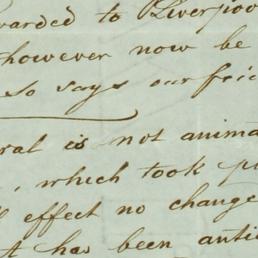 warded to Liverpoo
however now be
so says our frie
ral is not anima
, which took p
effect no change
has been anti